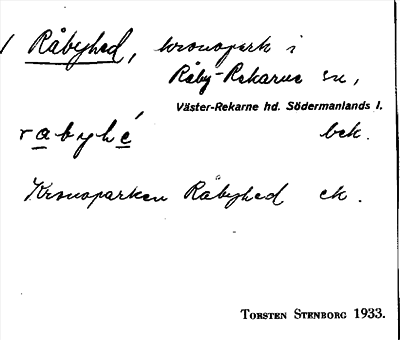 / Råbyhed, kronopark i
Råby-Rekarne sn,
Väster-Rekarne hd. Södermanlands l.
rabyhé bek.
Kronoparken Råbyhed ek.
TORSTEN STENBORG 1933.